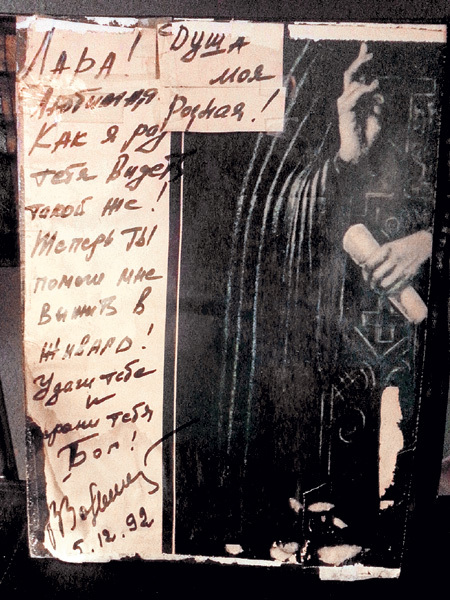 Лара!
Душа
моя
Родная!
Любимая
Как я рад
тебя видеть
такой же!
Теперь Ты
помоги мне
выжить в
Удачи тебе
и
храни тебя
Бог!
5.12.92